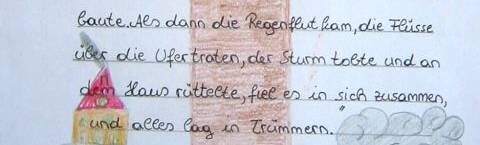 baute. Als dann die Regenflut kam, die Flüsse
über die Ufer traten, der Sturm tobte und an
dem Haus rüttelte, fiel es in sich zusammen,
und alles lag in Trümmern."